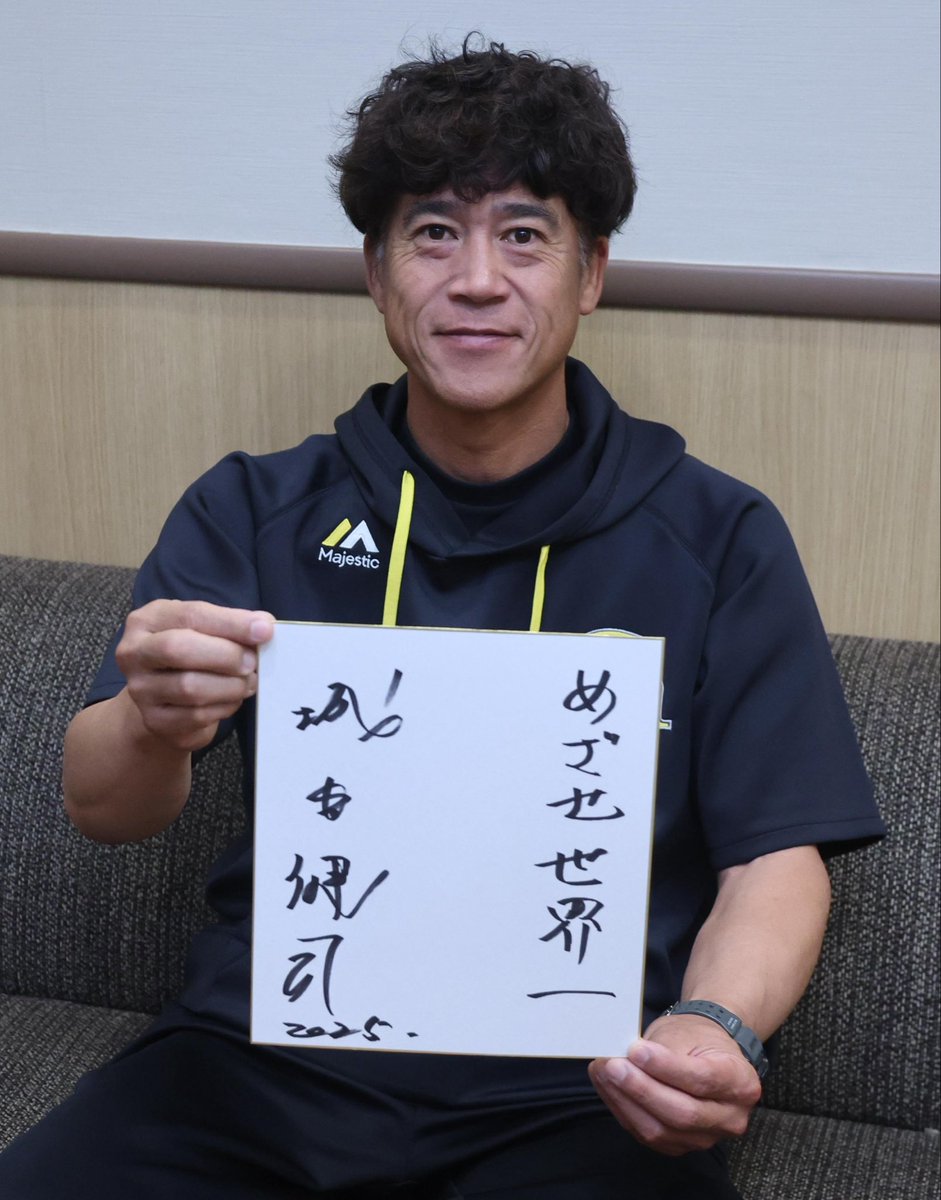 めざせ世界一
城島健司
2025.
Majestic